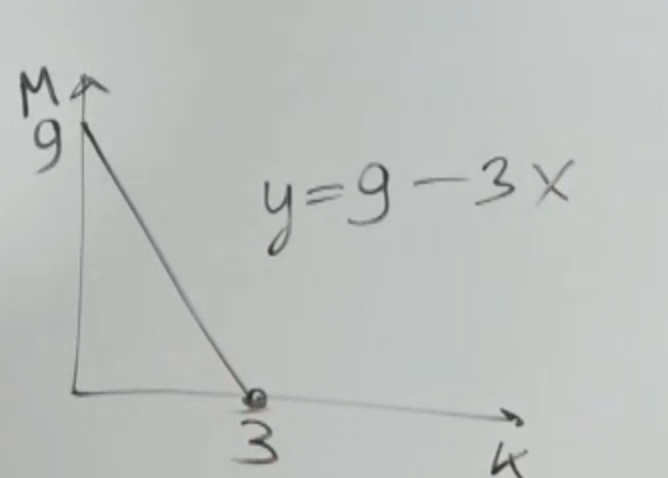 M
9
y=9-3x
3
K